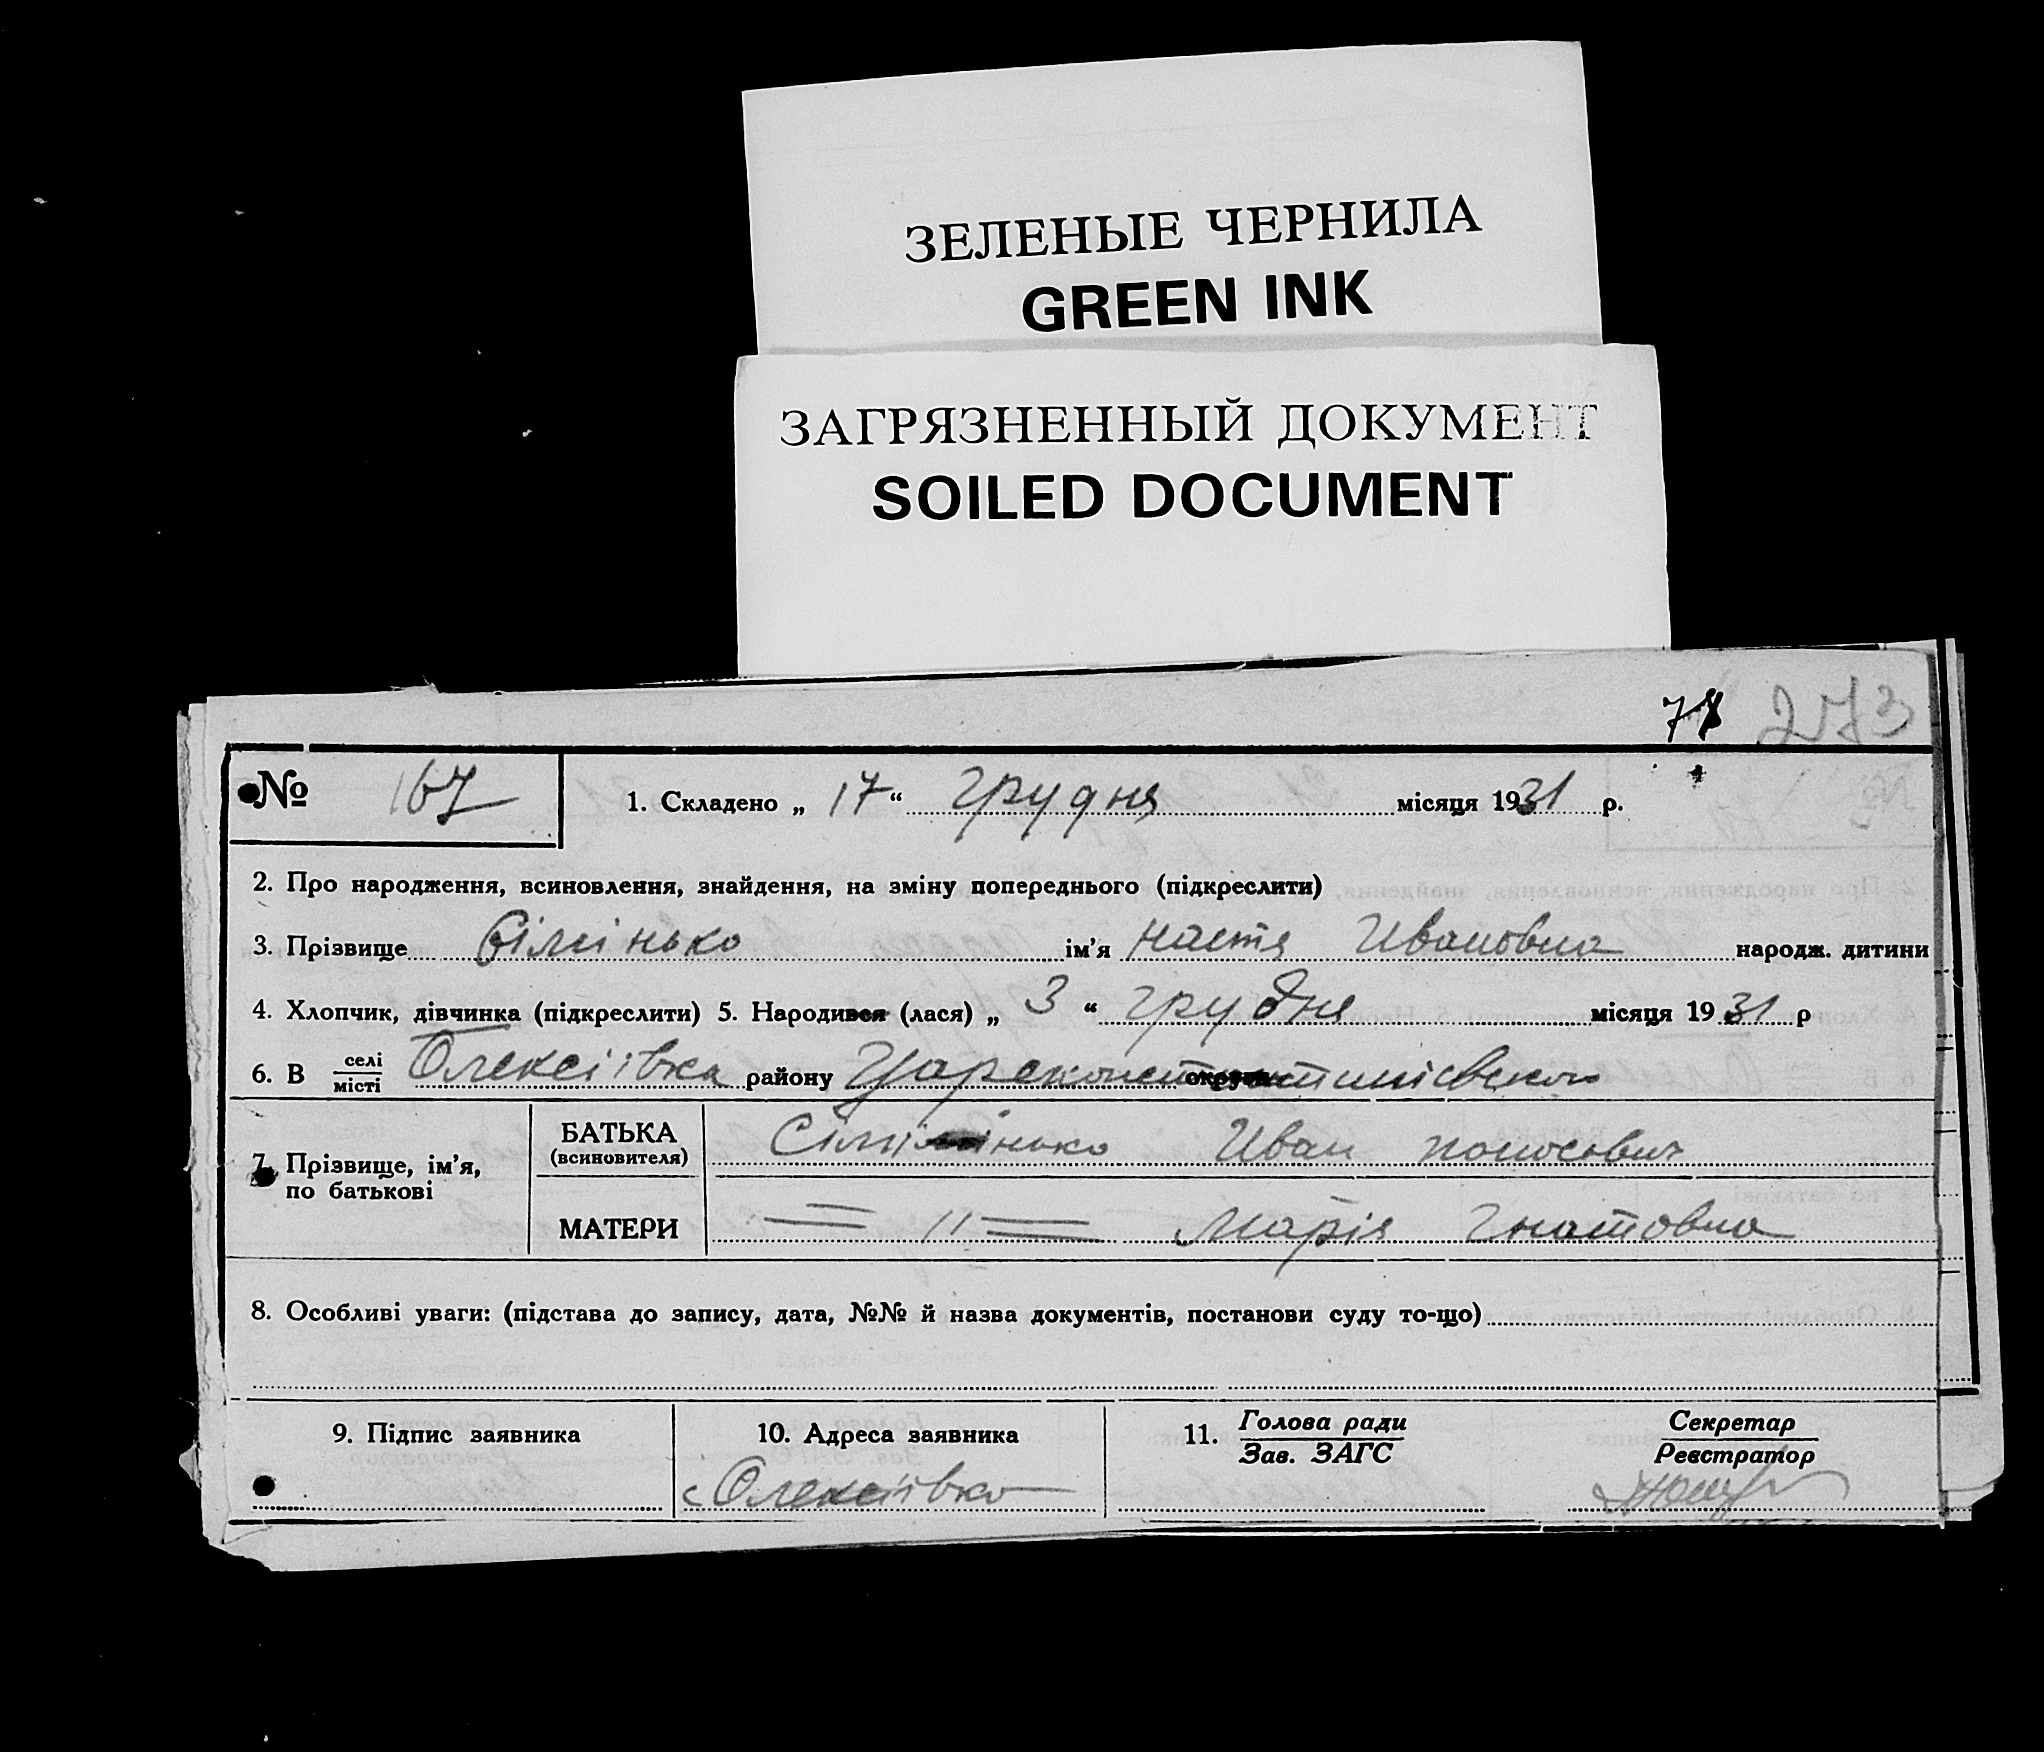 ЗЕЛЕНЫЕ ЧЕРНИЛА
GREEN INK
ЗАГРЯЗНЕННЫЙ ДОКУМЕНТ
SOILED DOCUMENT
273
№ 167 1. Складено „ 17 “ грудня місяця 1931 р.
2. Про народження, всиновлення, знайдення, на зміну попереднього (підкреслити)
3. Прізвище Сімінько ім’я Настя Ивановна народж. дитини
4. Хлопчик, дівчинка (підкреслити) 5. Народився (лася) „ 3 “ грудня місяця 1931 р
6. В селі/місті Олексіївка району
7. Прізвище, ім’я, по батькові
БАТЬКА (всиновителя) Иван
МАТЕРИ — 11 — Марія Гнатовна
8. Особливі уваги: (підстава до запису, дата, №№ й назва документів, постанови суду то-що)
9. Підпис заявника 10. Адреса заявника 11. Голова ради/Зав. ЗАГС Секретар/Реєстратор
с Олексіївка